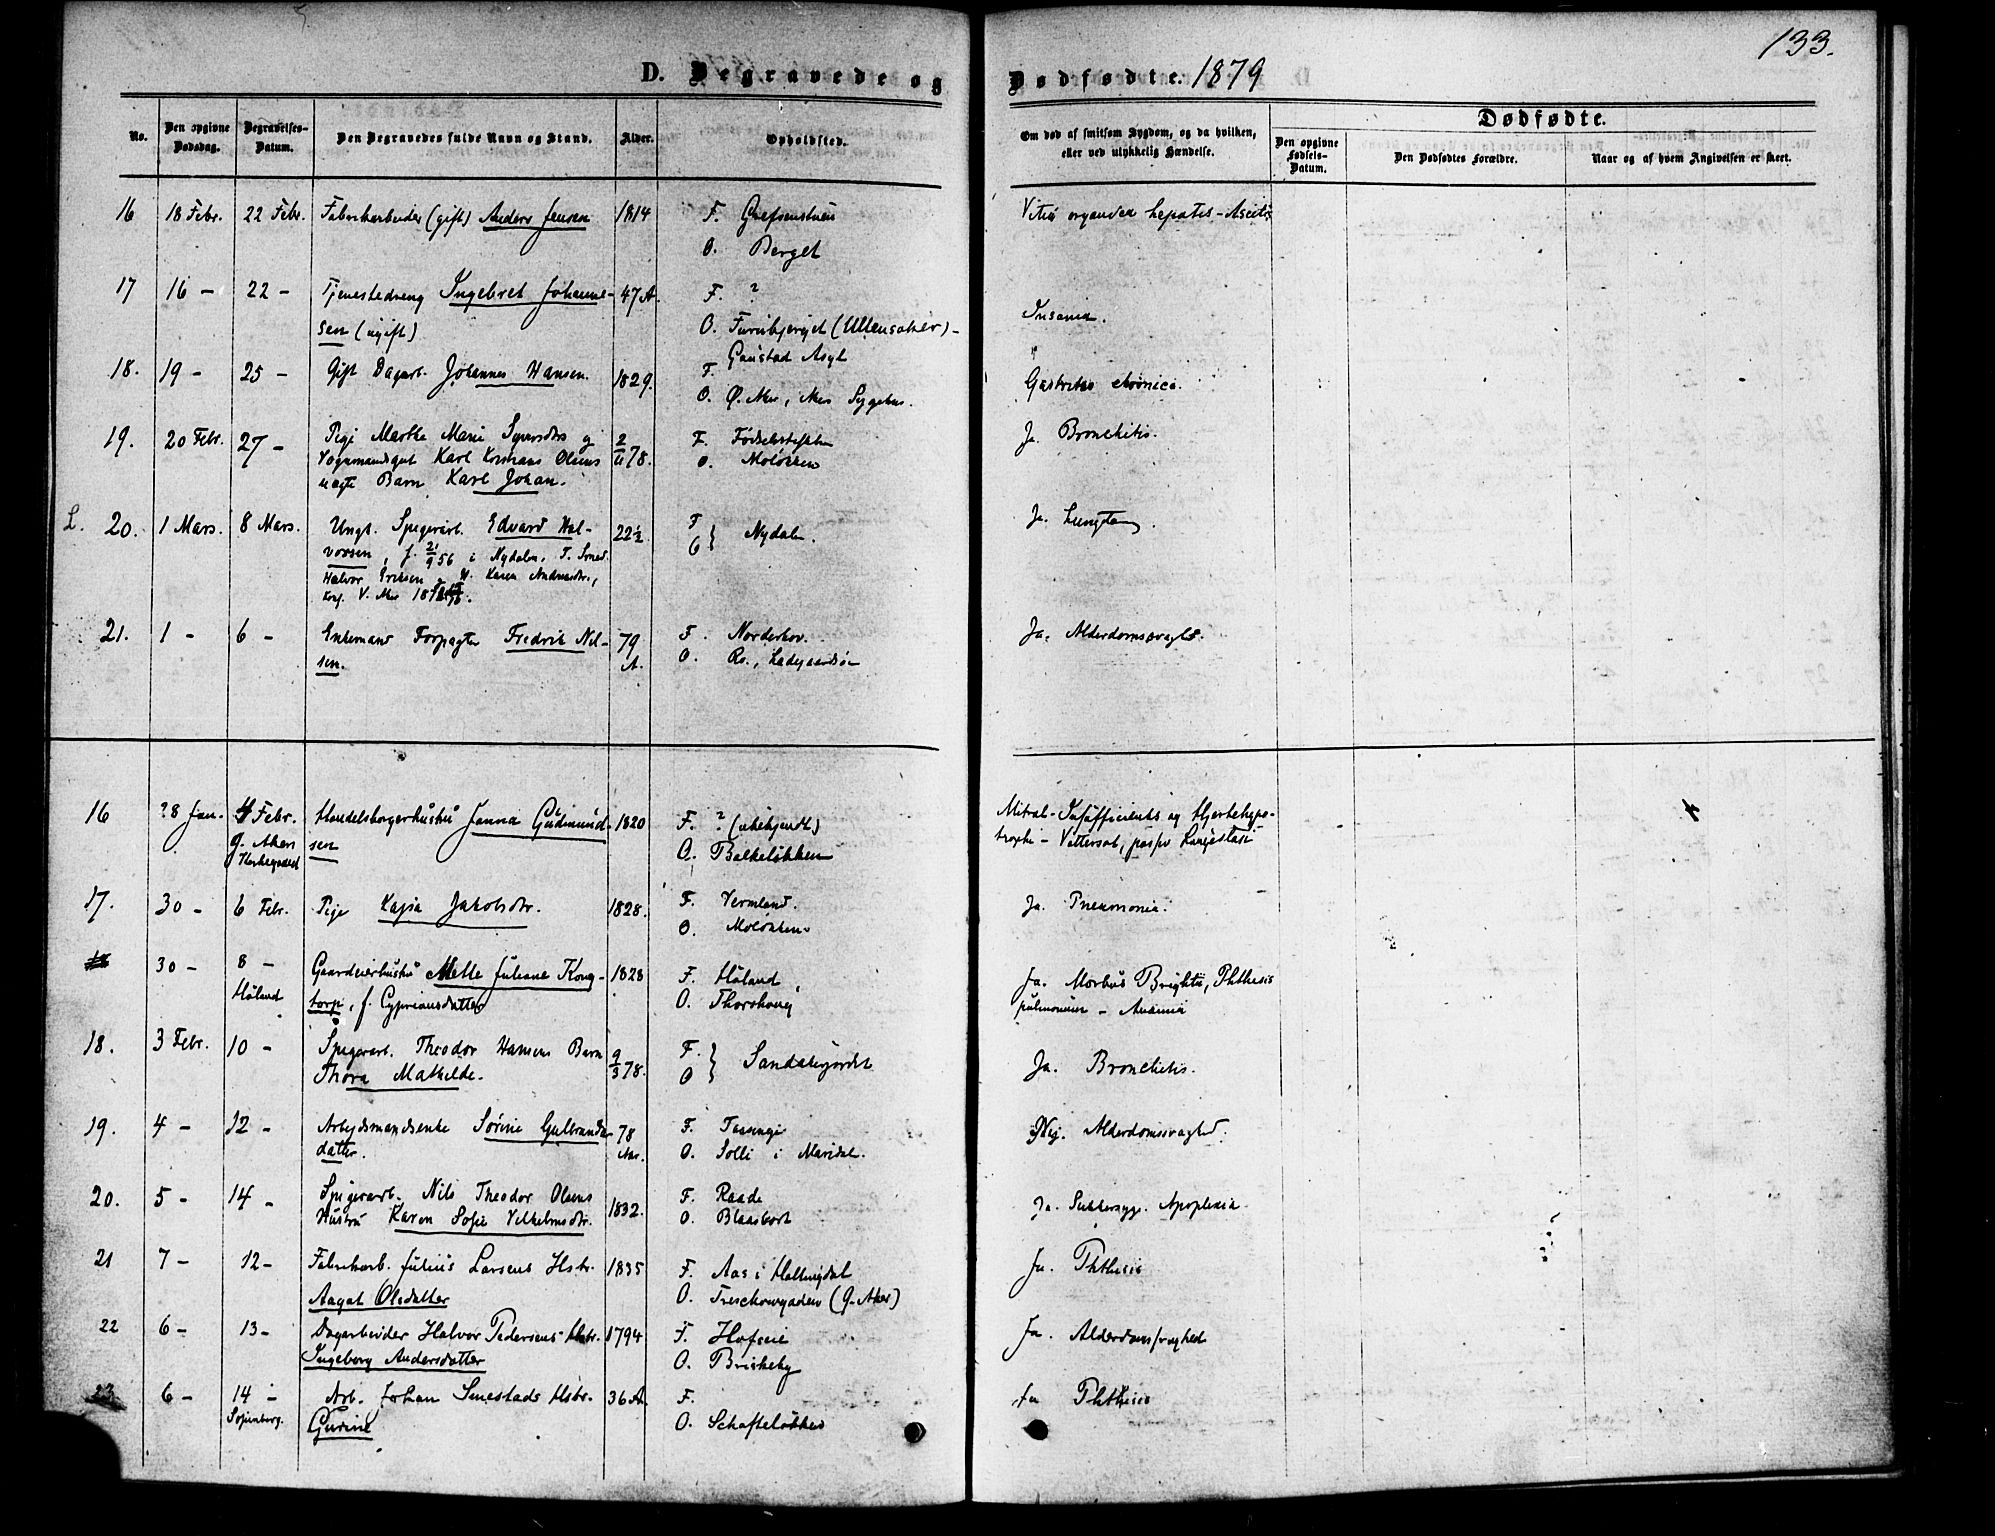 133.
D. Begravede og Dødfødte. 1879
No.
Den opgivne Dødsdag.
Begravelses-Datum.
Den Begravedes fulde Navn og Stand.
Alder.
Opholdsted.
Om død af smitsom Sygdom, og da hvilken, eller ved ulykkelig Hændelse.
Dødfødte.
Den opgivne Fødsels-Datum.
Den Dødfødtes Forældre.
Naar og af hvem Angivelsen er skeet.
16 18 Febr. 22 Febr. Fabrikarbeider (gift) Anders Jensen 1814 F. Grefsenstuen
O. Berget
17 16 - 22 - Tjenestedreng Ingebret Johanne- 47 A. F. ? Insania.
sen (ugift) O. (Ullensaker) -
Gaustad Asyl
18. 19 - 25 - Gift Dagarb. Johannes Hansen. 1829. F. Gastritis chronica.
O. Ø. Aker, Akers Sygehus.
19. 20 Febr. 27 - Pige Marthe Marie og 2/11 78. F. Fødselsstiftelsen Ja. Bronchitis.
Karl Olsens O. Moløkken
uægte Barn Karl Johan.
L. 20. 1 Mars. 8 Mars. Ungk. Spigerarb. Edvard Hal- 22½ F O } Nydalen. Ja.
vorsen, f. 21/9 56 i Nydalen. F.
Halvor Eriksen M. Karen
Konf. V. Aker
21. 1 - 6 - Enkemand Forpagter Fredrik Nil- 79 F. Norderhov. Ja. Alderdomssvaghed.
sen. A. O. Ladegaardsøen
16 28 Jan. 4 Febr. Handelsborgerhustru Janna Gudmund- 1820 F. ? (ubekjendt) Mitral-Insufficients og Hjertehyper-
G. Akers sen O. Balkeløkken trophi - Vattersot,
Kirkegaard
17. 30 - 6 Febr. Pige Kajsa Jakobsdtr. 1828. F. Vermland. Ja. Pneumonia.
O. Moløkken
30 - 8 - Gaardeierhustru Mette Juliane Kong- 1828 F. Høland, Ja. Morbus Brightii, Phthisis
Høland torp, f. Cypriansdatter O. Thorshoug pulmonum - Anæmia
18. 3 Febr. 10 - Spigerarb. Theodor Hansens Barn 9/3 78. F. O } Sandakerjordet Ja. Bronchitis.
Thora Mathilde.
19. 4 - 12 - Arbejdsmandsenke Sørine Gulbrands- 78 F. Nej. Alderdomssvaghed.
datter. Aar. O. Solli i Maridal.
20. 5 - 14 - Spigerarb. Nils Theodor Olsens 1832. F. Raade Ja. Sukkersyge. Apoplexia.
Hustru Karen Sofie Vilhelmsdtr. O. Blaasbort
21 7 - 12 - Fabrikarb. Julius Larsens Hstr. 1835 F. Aas i Hallingdal Ja. Phthisis
Aagot Olsdatter O. Treschowgaden (G. Aker)
22 6 - 13 - Dagarbeider Halvor Pedersens Hstr. 1794 F. Hafseie Ja. Alderdomssvaghed
Ingeborg Andersdatter O. Briskeby
23. 6 - 14 - Arb. Johan Smestads Hstr. 36 A. F. Ja Phthisis
Sofienberg. Gurine O. Schafteløkken